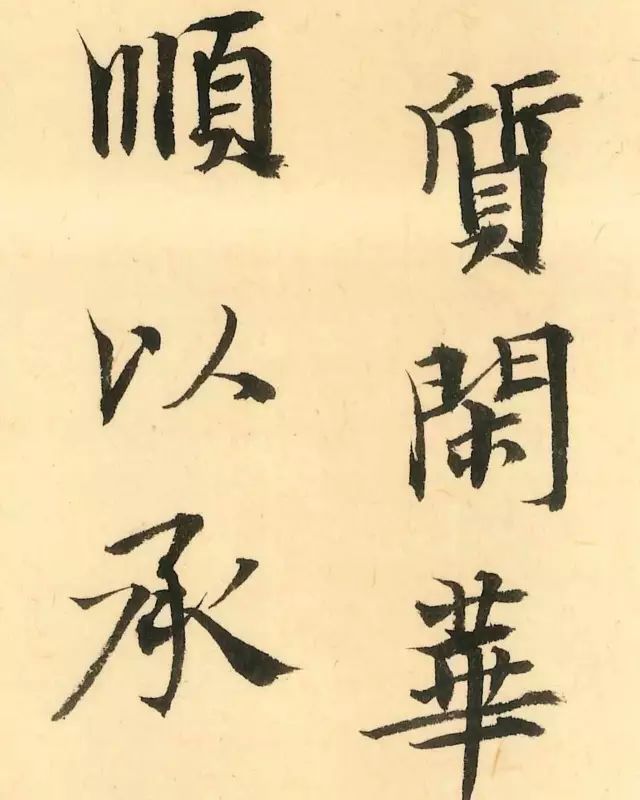 質閑華
順以承